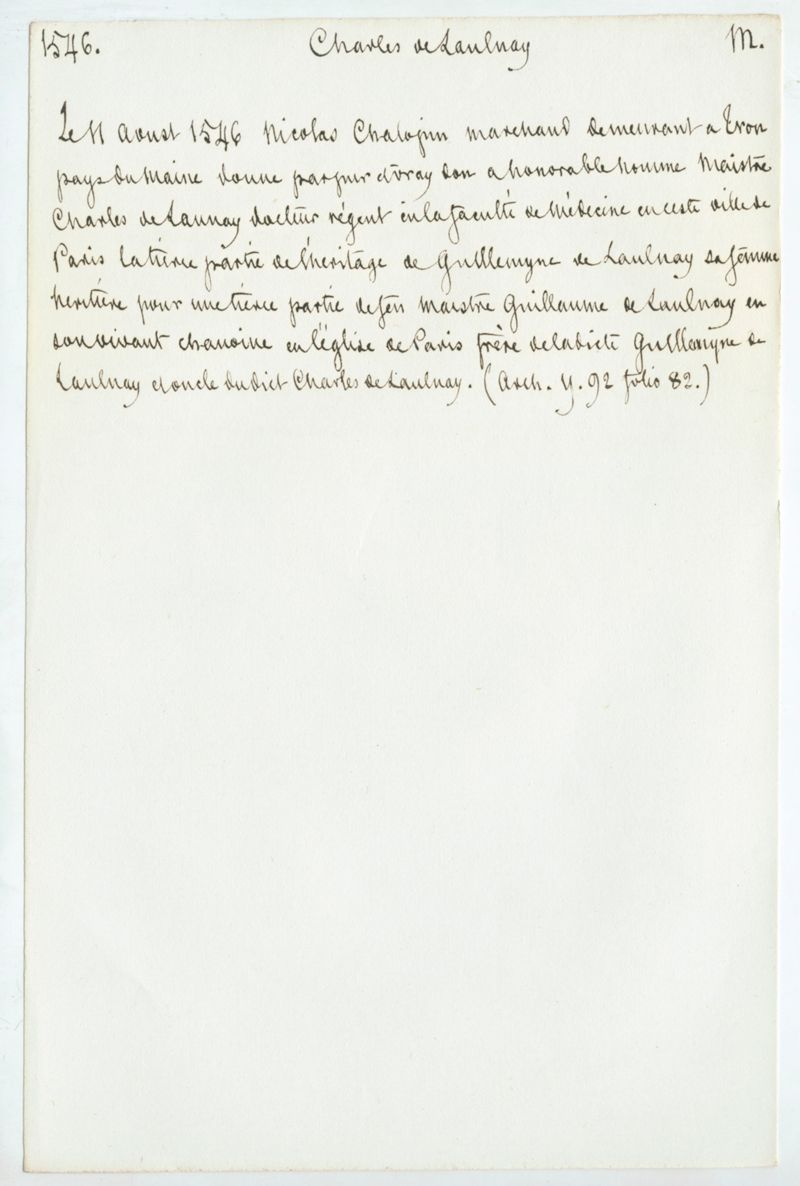 1546. Charles de Laulnay M.
Le 11 Aoust 1546 Nicolas Chalopin marchand demeurant a Tron
pays du Maine donne par pur et vray don a honorable homme Maistre
Charles de Launay docteur régent en la faculté de Médecine en ceste ville de
Paris la tierce partie de l'heritage de Guillemyne de Laulnay sa femme
heritière pour une tierce partie de feu Maistre Guillaume de Laulnay en
son vivant chanoine en l'église de Paris frère de la dicte Guillemyne de
Laulnay et oncle du dict Charles de Laulnay. (Arch. Y. 92 folio 82.)